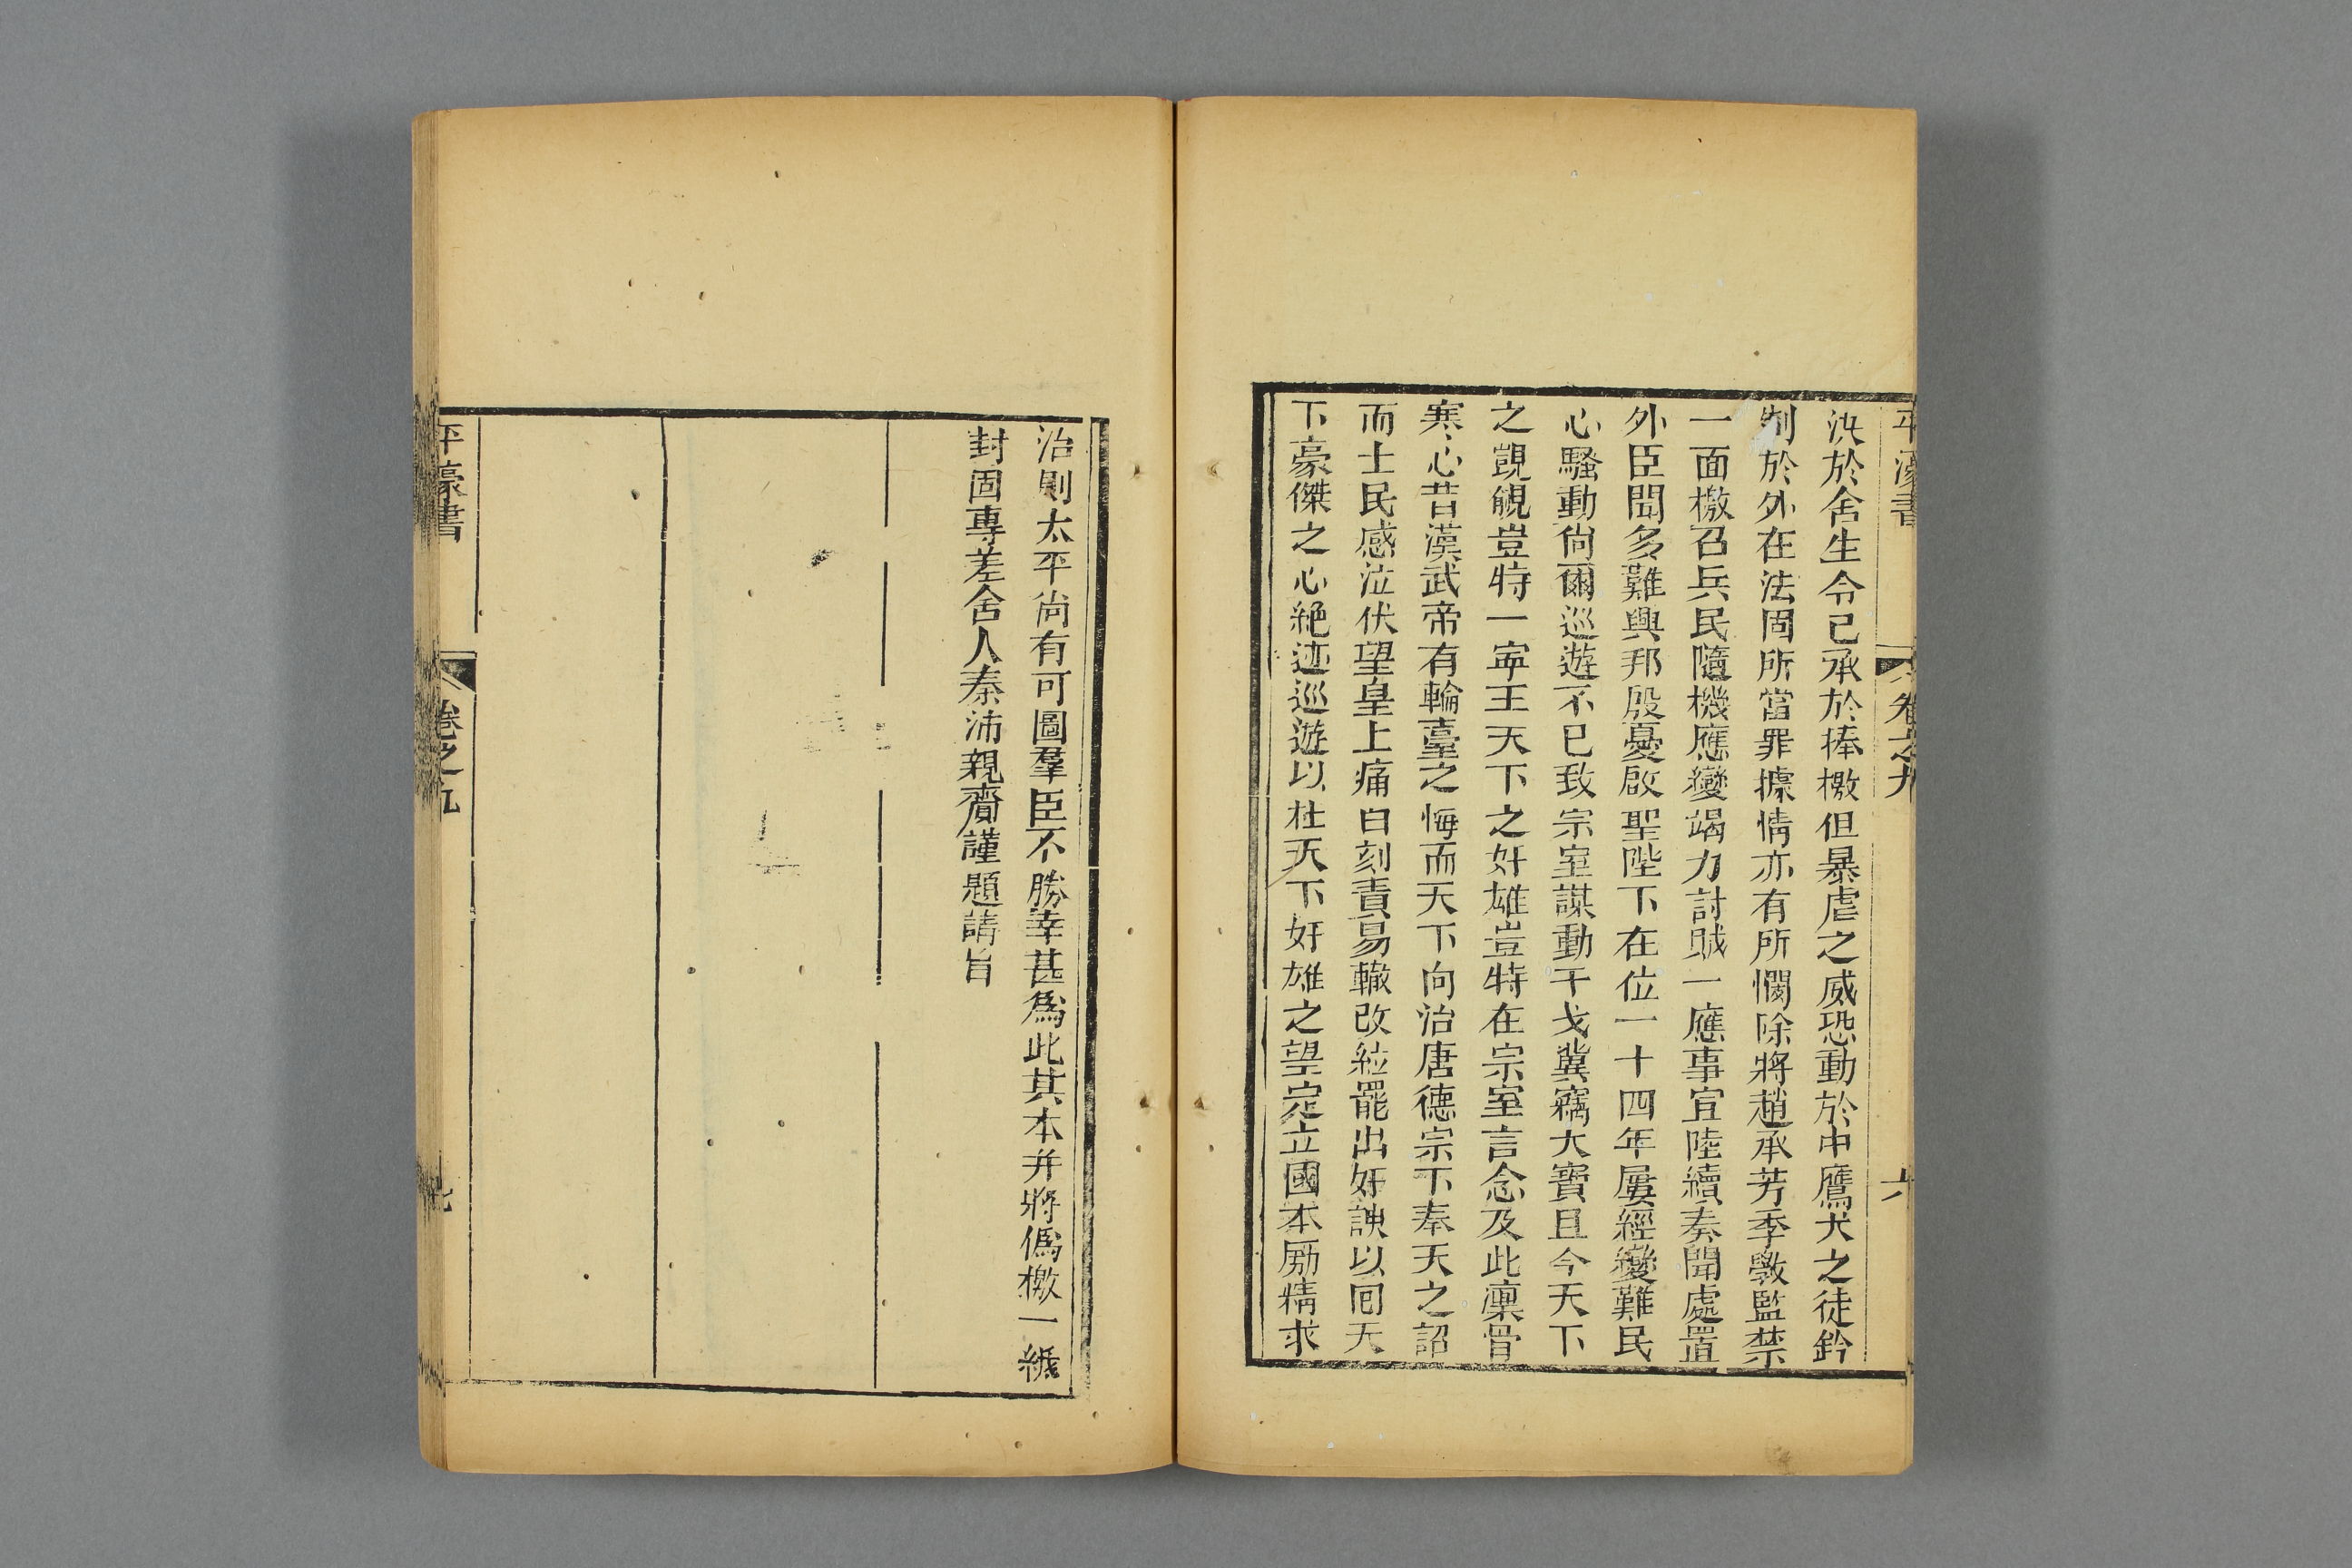 平濠書
卷之九
六
決於舍生令已承於捧檄但暴虐之威恐動於中鷹犬之徒鈐
制於外在法固所當罪據情亦有所憫除將趙承芳季斆監禁
一面檄召兵民隨機應變竭力討賊一應事宜陸續奏聞處置
外臣聞多難興邦殷憂啟聖陛下在位一十四年屢經變難民
心騷動尙爾巡遊不已致宗室謀動干戈冀竊大寶且今天下
之覬覦豈特一寧王天下之奸雄豈特在宗室言念及此凜骨
寒心昔漢武帝有輪臺之悔而天下向治唐德宗下奉天之詔
而士民感泣伏望皇上痛自刻責易轍改絃罷出奸諛以回天
下豪傑之心絕迹巡遊以杜天下奸雄之望定立國本勵精求
治則太平尙有可圖羣臣不勝幸甚爲此其本并將僞檄一紙
封固專差舍人秦沛親齎謹題請旨
平濠書
卷之九
七